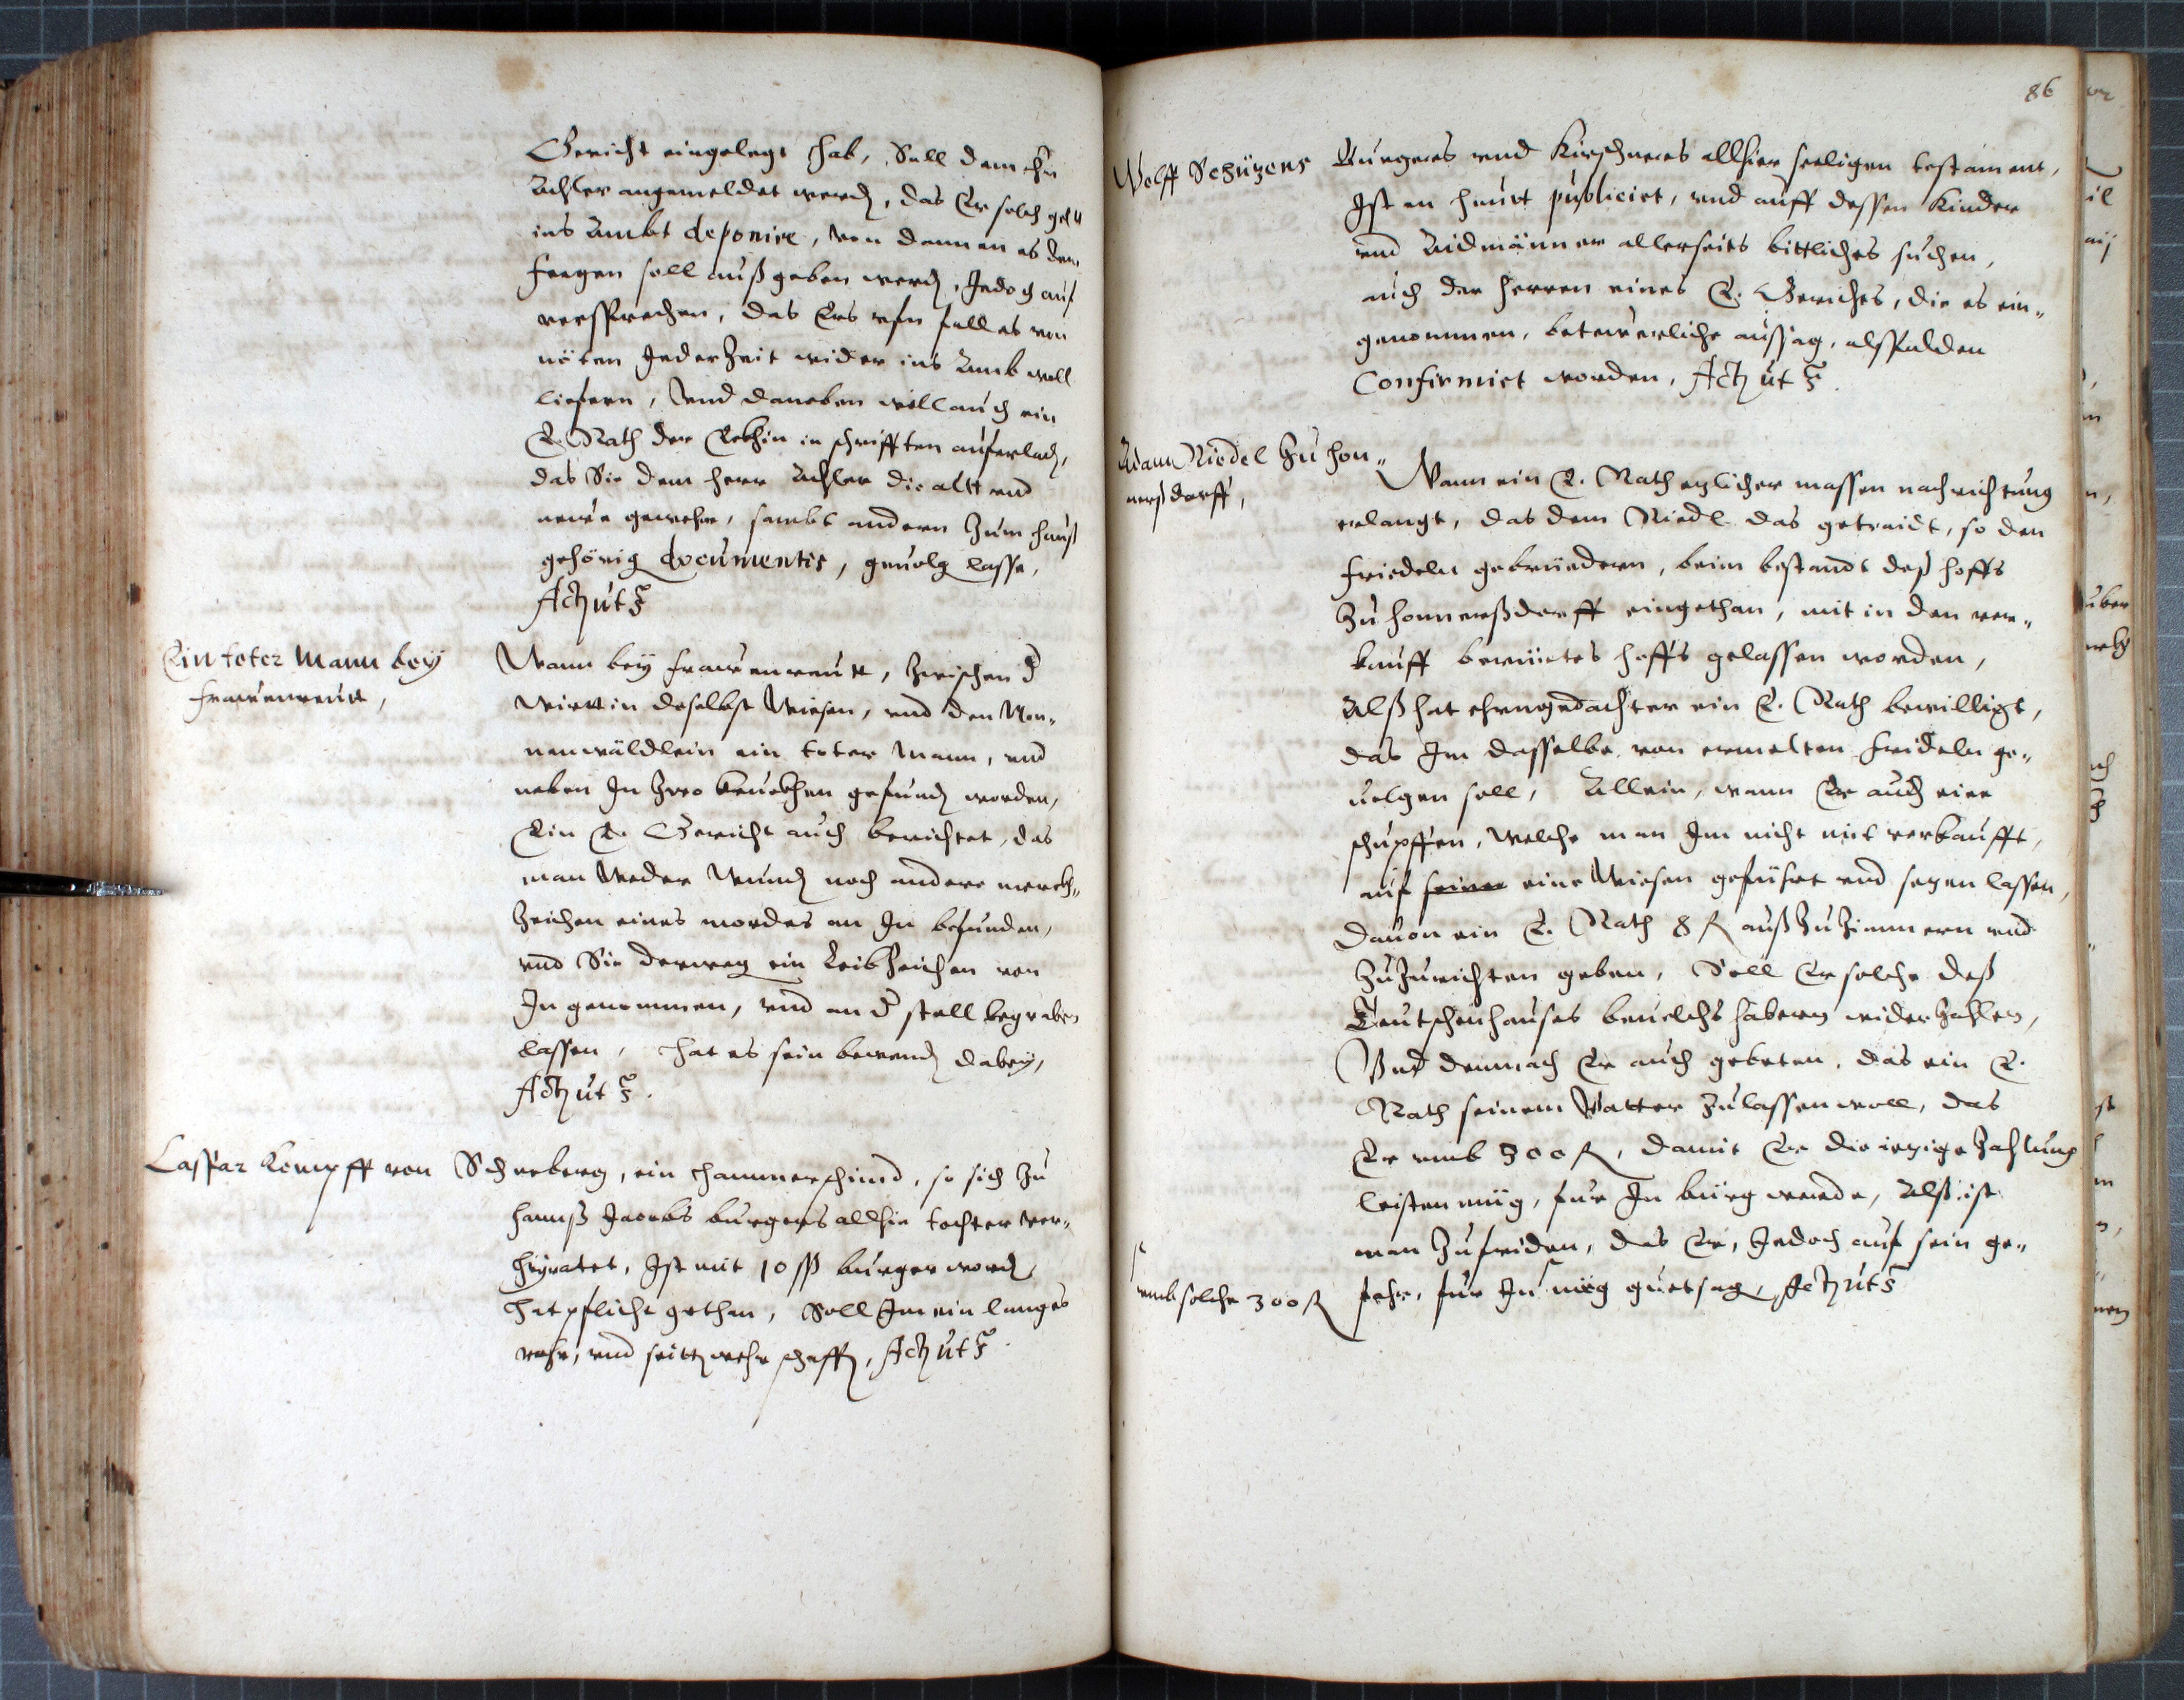 Gericht eingelegt hab, Soll dem hn
Achler angemeldet werdn, das Er solch gelt
ins Ambt deponire, von dannen es dem
fragen soll auß geben werdn, Jedoch auf
versprechen, das Ers vfn fall es von
nöten Jederzeit wider ins Amb woll
liefern, Vnd daneben will auch ein
E. Rath der in schrifften auferladn,
das Sie dem herr Achler die alte vnd
newe gewehr, sambt andern zum hauß
gehörig documentis, geuolg lasse,
Actu ut s
Ein toter Mann bey
frawenreut,
Wann bey frawenreutt, zwischen d
wirttin doselbst Wiesen, vnd den Non-
nenwäldlein ein toter Mann, vnd
neben In zwo gefundn worden,
Ein E. Gericht auch berichtet, das
man Weder Wundn noch andere merckh-
zeichen eines mordes an In befunden,
vnd Sie derweg ein Leibzeichen von
In genommen, vnd an d stell begraben
lassen, hat es sein bewendn dabey,
Actu ut s.
Caspar Kempff von Schneberg, ein hammerschmid, so sich zu
hannß Jacobs burgers allhie tochter ver-
heyratet, Ist mit 10 ß burger wordn
hat pflicht gethan, Soll Im ein langes
rohr, vnd seittn wehr schaffn, Actu ut s.
86
Wolff Schüzens Burgers vnd Kirschners allhier seeligen testament,
Ist an heutt publicirt, vnd auff dessen Kinder
vnd Aidmänner allerseits bittliches suchen,
auch der herren eines E. Gerichts, die es ein-
genommen, betewerliche aussag, alspalden
Confirmirt worden, Actu ut s.
Adam Riedel zu hon-
nerßdorff,
Wann ein E. Rath ezlicher massen nachrichtung
erlangt, das dem Riedl das getraidt, so den
Friedeln gebrüedern, beim bestandt deß hoffs
zu honnerßdorff eingethan, mit in den ver-
kauff berürtes hoffs gelassen worden,
Alß hat ehrngedachter ein E. Rath bewilligt,
das Im dasselbe von ermelten Frideln ge-
uolgen soll, Allein, wann Er auch eine
schupffen, welche man Im nicht mit verkaufft,
auf seine eine Wiesen gefürht vnd sezen lassen,
dauon ein E. Rath 8 fl außzuzimmern vnd
zuzurichten geben, Soll Er solche deß
Teutschenhauses beuelchshabern widerzahlen,
Vnd demnach Er auch gebeten, das ein E.
Rath seinem Vatter zulassen woll, das
Er vmb 300 fl, damit Er die iezige zahlung
leisten müg, fur In bürg werde, Alß ist
man zufriden, das Er, Jedoch auf sein ge-
vmb solche 300 fl
fahr, fur In müg guetsag, Actu ut s